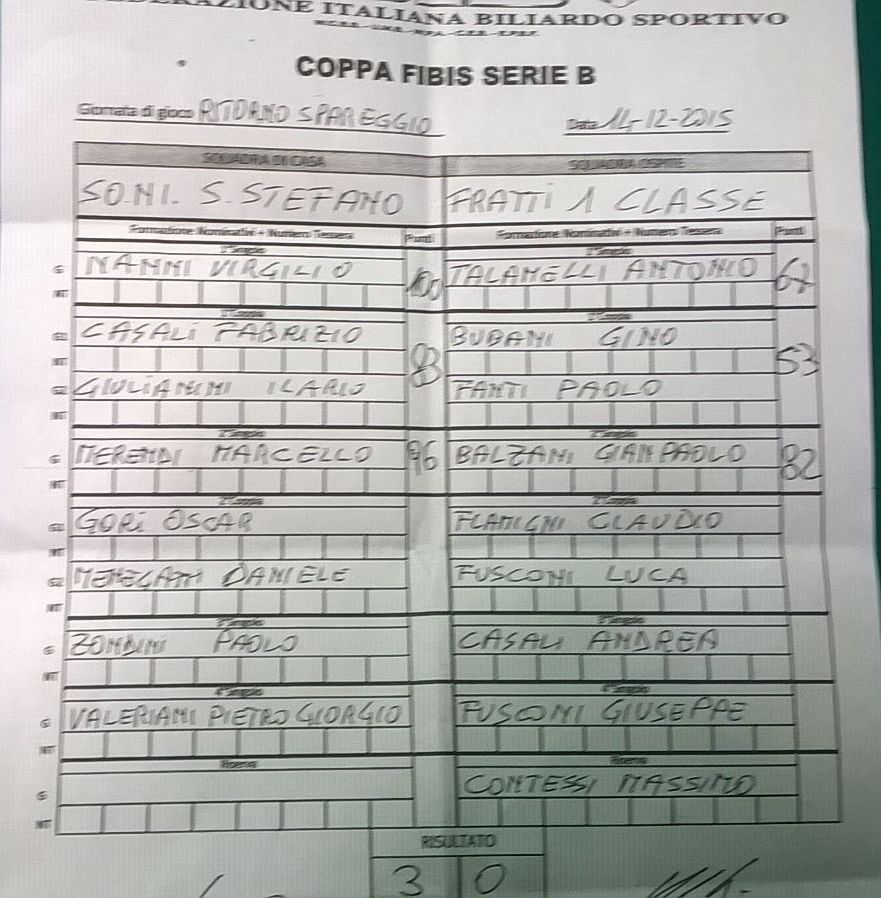 ITALIANA BILIARDO SPORTIVO
COPPA FIBIS SERIE B
Giornata di gioco RITORNO SPAREGGIO Data 14-12-2015
SQUADRA DI CASA SQUADRA OSPITE
SO.NI. S.STEFANO FRATTI 1 CLASSE
Formazione Nominativi + Numero Tessera Punti Formazione Nominativi + Numero Tessera Punti
1°Singolo 1°Singolo
G NANNI VIRGILIO 100 TALAMELLI ANTONIO 67
NT
1°Coppia 1°Coppia
G1 CASALI FABRIZIO 83 BUBANI GINO 53
NT
G2 GIULIANINI ILARIO FANTI PAOLO
NT
2°Singolo 2°Singolo
G MERENDI MARCELLO 96 BALZANI GIANPAOLO 82
NT
2°Coppia 2°Coppia
G1 GORI OSCAR FLAMIGNI CLAUDIO
NT
G2 MENEGATTI DANIELE FUSCONI LUCA
NT
3°Singolo 3°Singolo
G ZONDINI PAOLO CASALI ANDREA
NT
4°Singolo 4°Singolo
G VALERIANI PIETRO GIORGIO FUSCONI GIUSEPPE
NT
Riserva Riserva
G CONTESSI MASSIMO
NT
RISULTATO
3 0